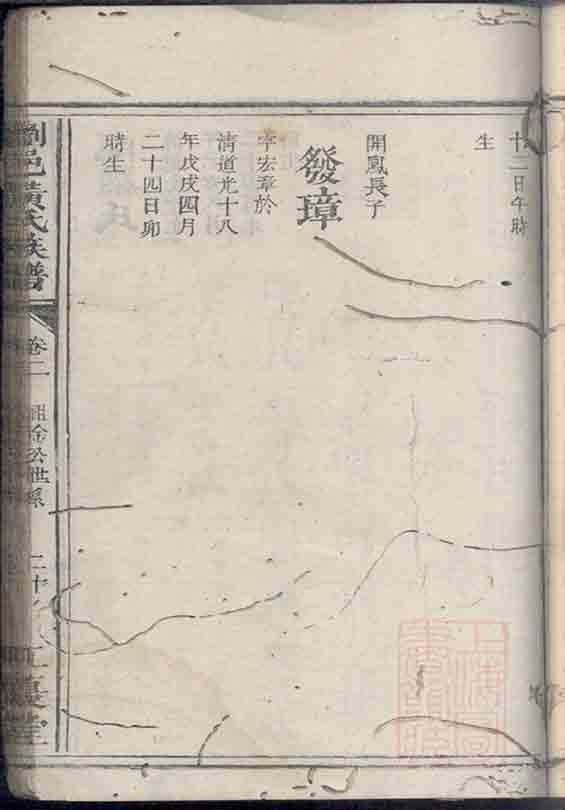 十二日午時
生
開鳳長子
發璋
字宏章於
清道光十八
年戊戌四月
二十四日卯
時生
瀏邑黃氏族譜
卷二
公世系